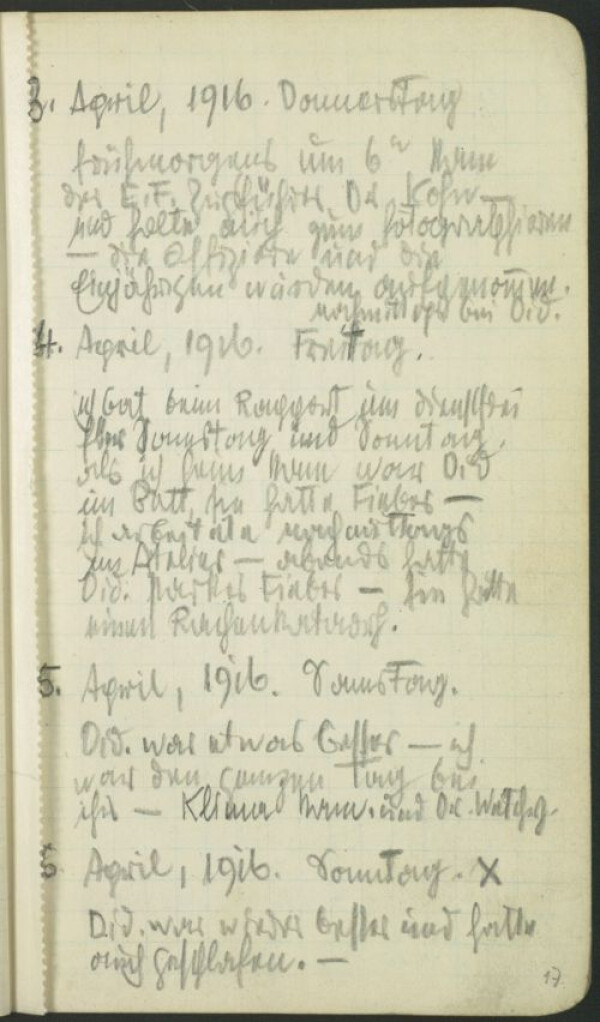 3. April, 1916. Donnerstag
frühmorgens um 6ʰ kam
der E.F. Zugsführer Dr. Kohn —
und holte mich zum fotographieren
— die Offiziere und die
Einjährigen wurden aufgenommen.
nachmittags bei Did.
4. April, 1916. Freitag.
ich bat beim Rapport um dienstfrei
über Samstag und Sonntag.
als ich heim kam war Did
im Bett, sie hatte Fieber —
ich arbeitete nachmittags
im Atelier — abends hatte
Did. starkes Fieber — sie hatte
einen Rachenkatarrh.
5. April, 1916. Samstag.
Did. war etwas besser — ich
war den ganzen Tag bei
ihr — kam und Dr.
6 April, 1916. Sonntag. X
Did. war wieder besser und hatte
auch geschlafen. —
17